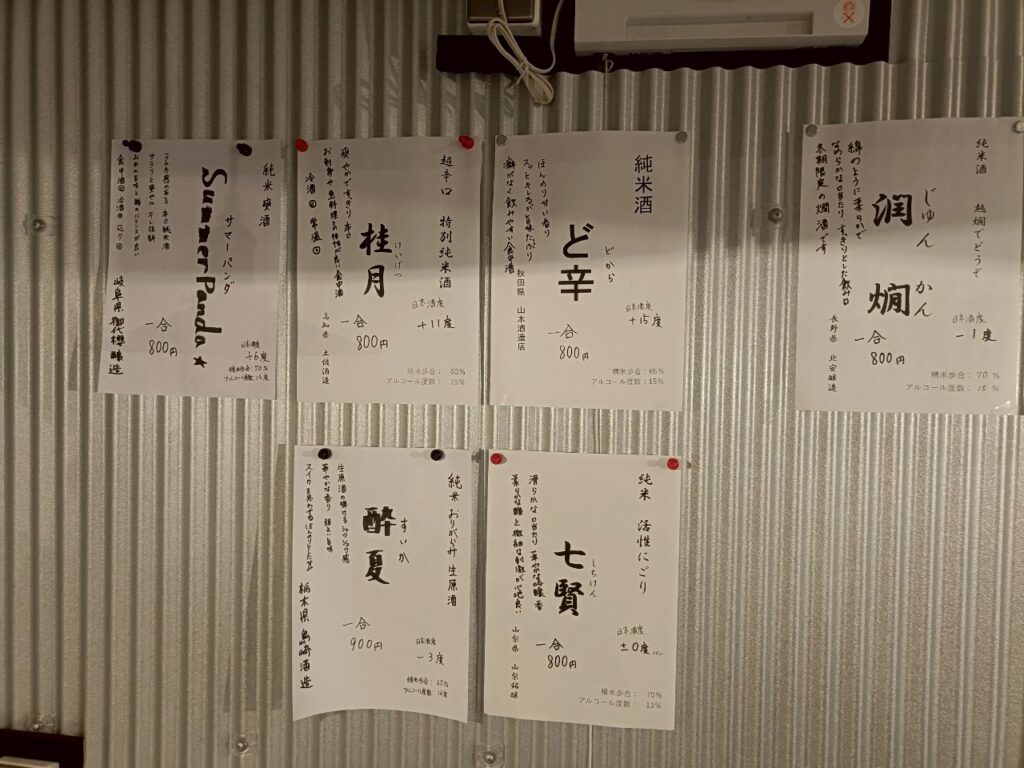 純米 爽酒
サマーパンダ
Summer Panda★
一合
800円
日本酒度
+6度
精米歩合: 70%
アルコール度数: 16度
サラリと爽やか キレ抜群
岐阜県 御代櫻醸造
超辛口 特別純米酒
けいげつ
桂月
日本酒度
+11度
一合
800円
爽やかですっきり辛口
お刺身や魚料理との相性が良い食中酒
冷酒◎ 常温◎
高知県 土佐酒造
精米歩合: 60%
アルコール度数: 15%
純米酒
どから
ど辛
日本酒度
+15度
一合
800円
ほんのり甘い香り
スッとキレるが旨味たっぷり
癖がなく飲みやすい食中酒
秋田県 山本酒造店
精米歩合: 65%
アルコール度数: 15%
純米酒 熱燗でどうぞ
じゅん かん
潤 燗
日本酒度
-1度
一合
800円
綿のように柔らかで
なめらかな口当たり、すっきりとした飲み口
冬期限定の燗酒です
長野県 北安醸造
精米歩合: 70%
アルコール度数: 15%
純米 おりがらみ 生原酒
すいか
酔夏
日本酒度
-3度
一合
900円
華やかな香り 程よい旨味
栃木県 島崎酒造
精米歩合: 65%
アルコール度数: 16度
純米 活性にごり
しちけん
七賢
日本酒度
±0度
一合
800円
滑らかな口当たり 華やかな吟醸香
柔らかな酸と微細な刺激が心地良い
山梨県 山梨銘醸
精米歩合: 70%
アルコール度数: 13%